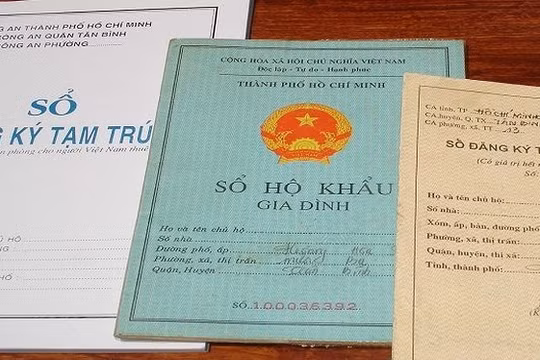 G AN THÀNH PHỐ HỒ CHÍ MINH
ÔNG AN QUẬN TÂN BÌNH
ÔNG AN PHƯỜNG
SỔ
G KÝ TẠM TRÚ
n phòng cho người Việt Nam thuê
CỘNG HÒA XÃ HỘI CHỦ NGHĨA VIỆT NAM
Độc lập - Tự do - Hạnh phúc
THÀNH PHỐ HỒ CHÍ MINH
SỔ HỘ KHẨU
GIA ĐÌNH
Họ và tên chủ hộ
Số nhà
Đường phố, ấp
Phường, xã, thị trấn
Quận, Huyện
SỐ 100036392
CA tỉnh, TP HỒ CHÍ MINH
CA huyện, Q, TX TÂN BÌN
CA phường, xã, TT 13
SỔ ĐĂNG KÝ T
(Có giá trị hết
Số:
Họ và tên chủ hộ:
Số nhà:
Xóm, ấp, bản, đường phố
Phường, xã, thị trấn:
Quận, huyện, thị xã:
Tỉnh, thành phố: